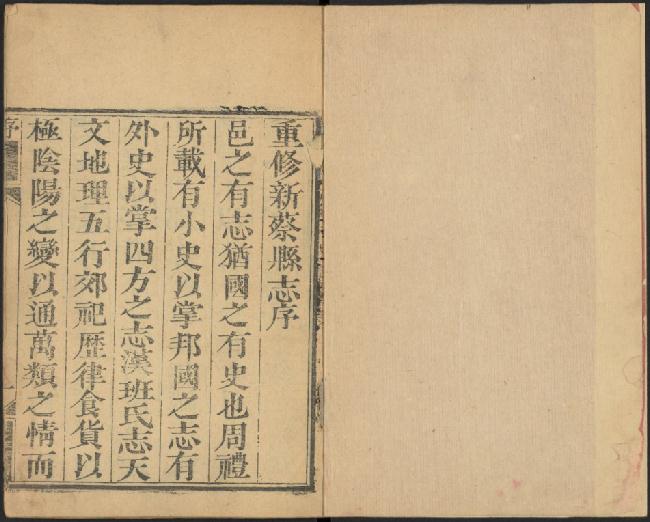 重修新蔡縣志序
邑之有志猶國之有史也周禮
所載有小史以掌邦國之志有
外史以掌四方之志漢班氏志天
文地理五行郊祀歷律食貨以
極陰陽之變以通萬類之情而
序